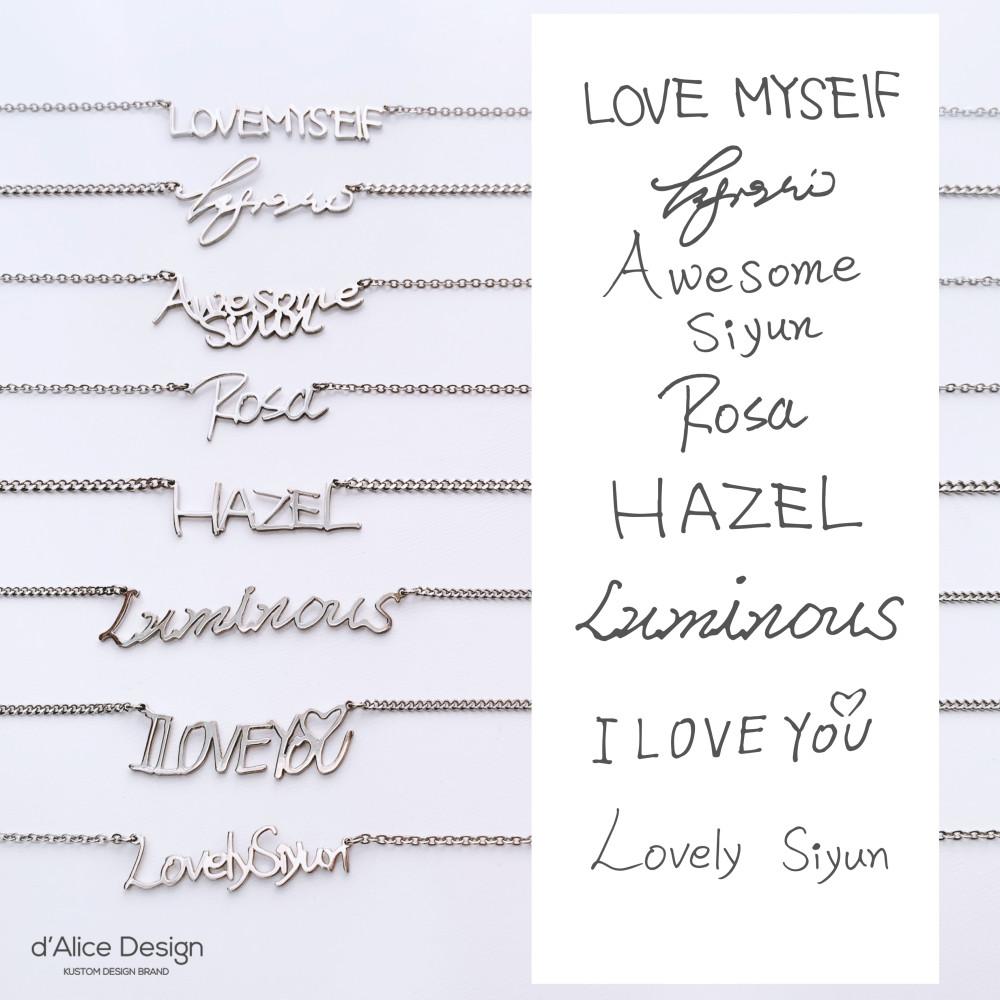 LOVEMYSElF
Awesome
Siyun
Rosa
HAZEL
Luminous
I LOVE YOU
LovelySiyun
LOVE MYSElF
Awesome
Siyun
Rosa
HAZEL
Luminous
I LOVE YOU
Lovely Siyun
d'Alice Design
KUSTOM DESIGN BRAND